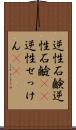 逆性石鹸逆
性石鹼《《
逆性せっけ
ん《《